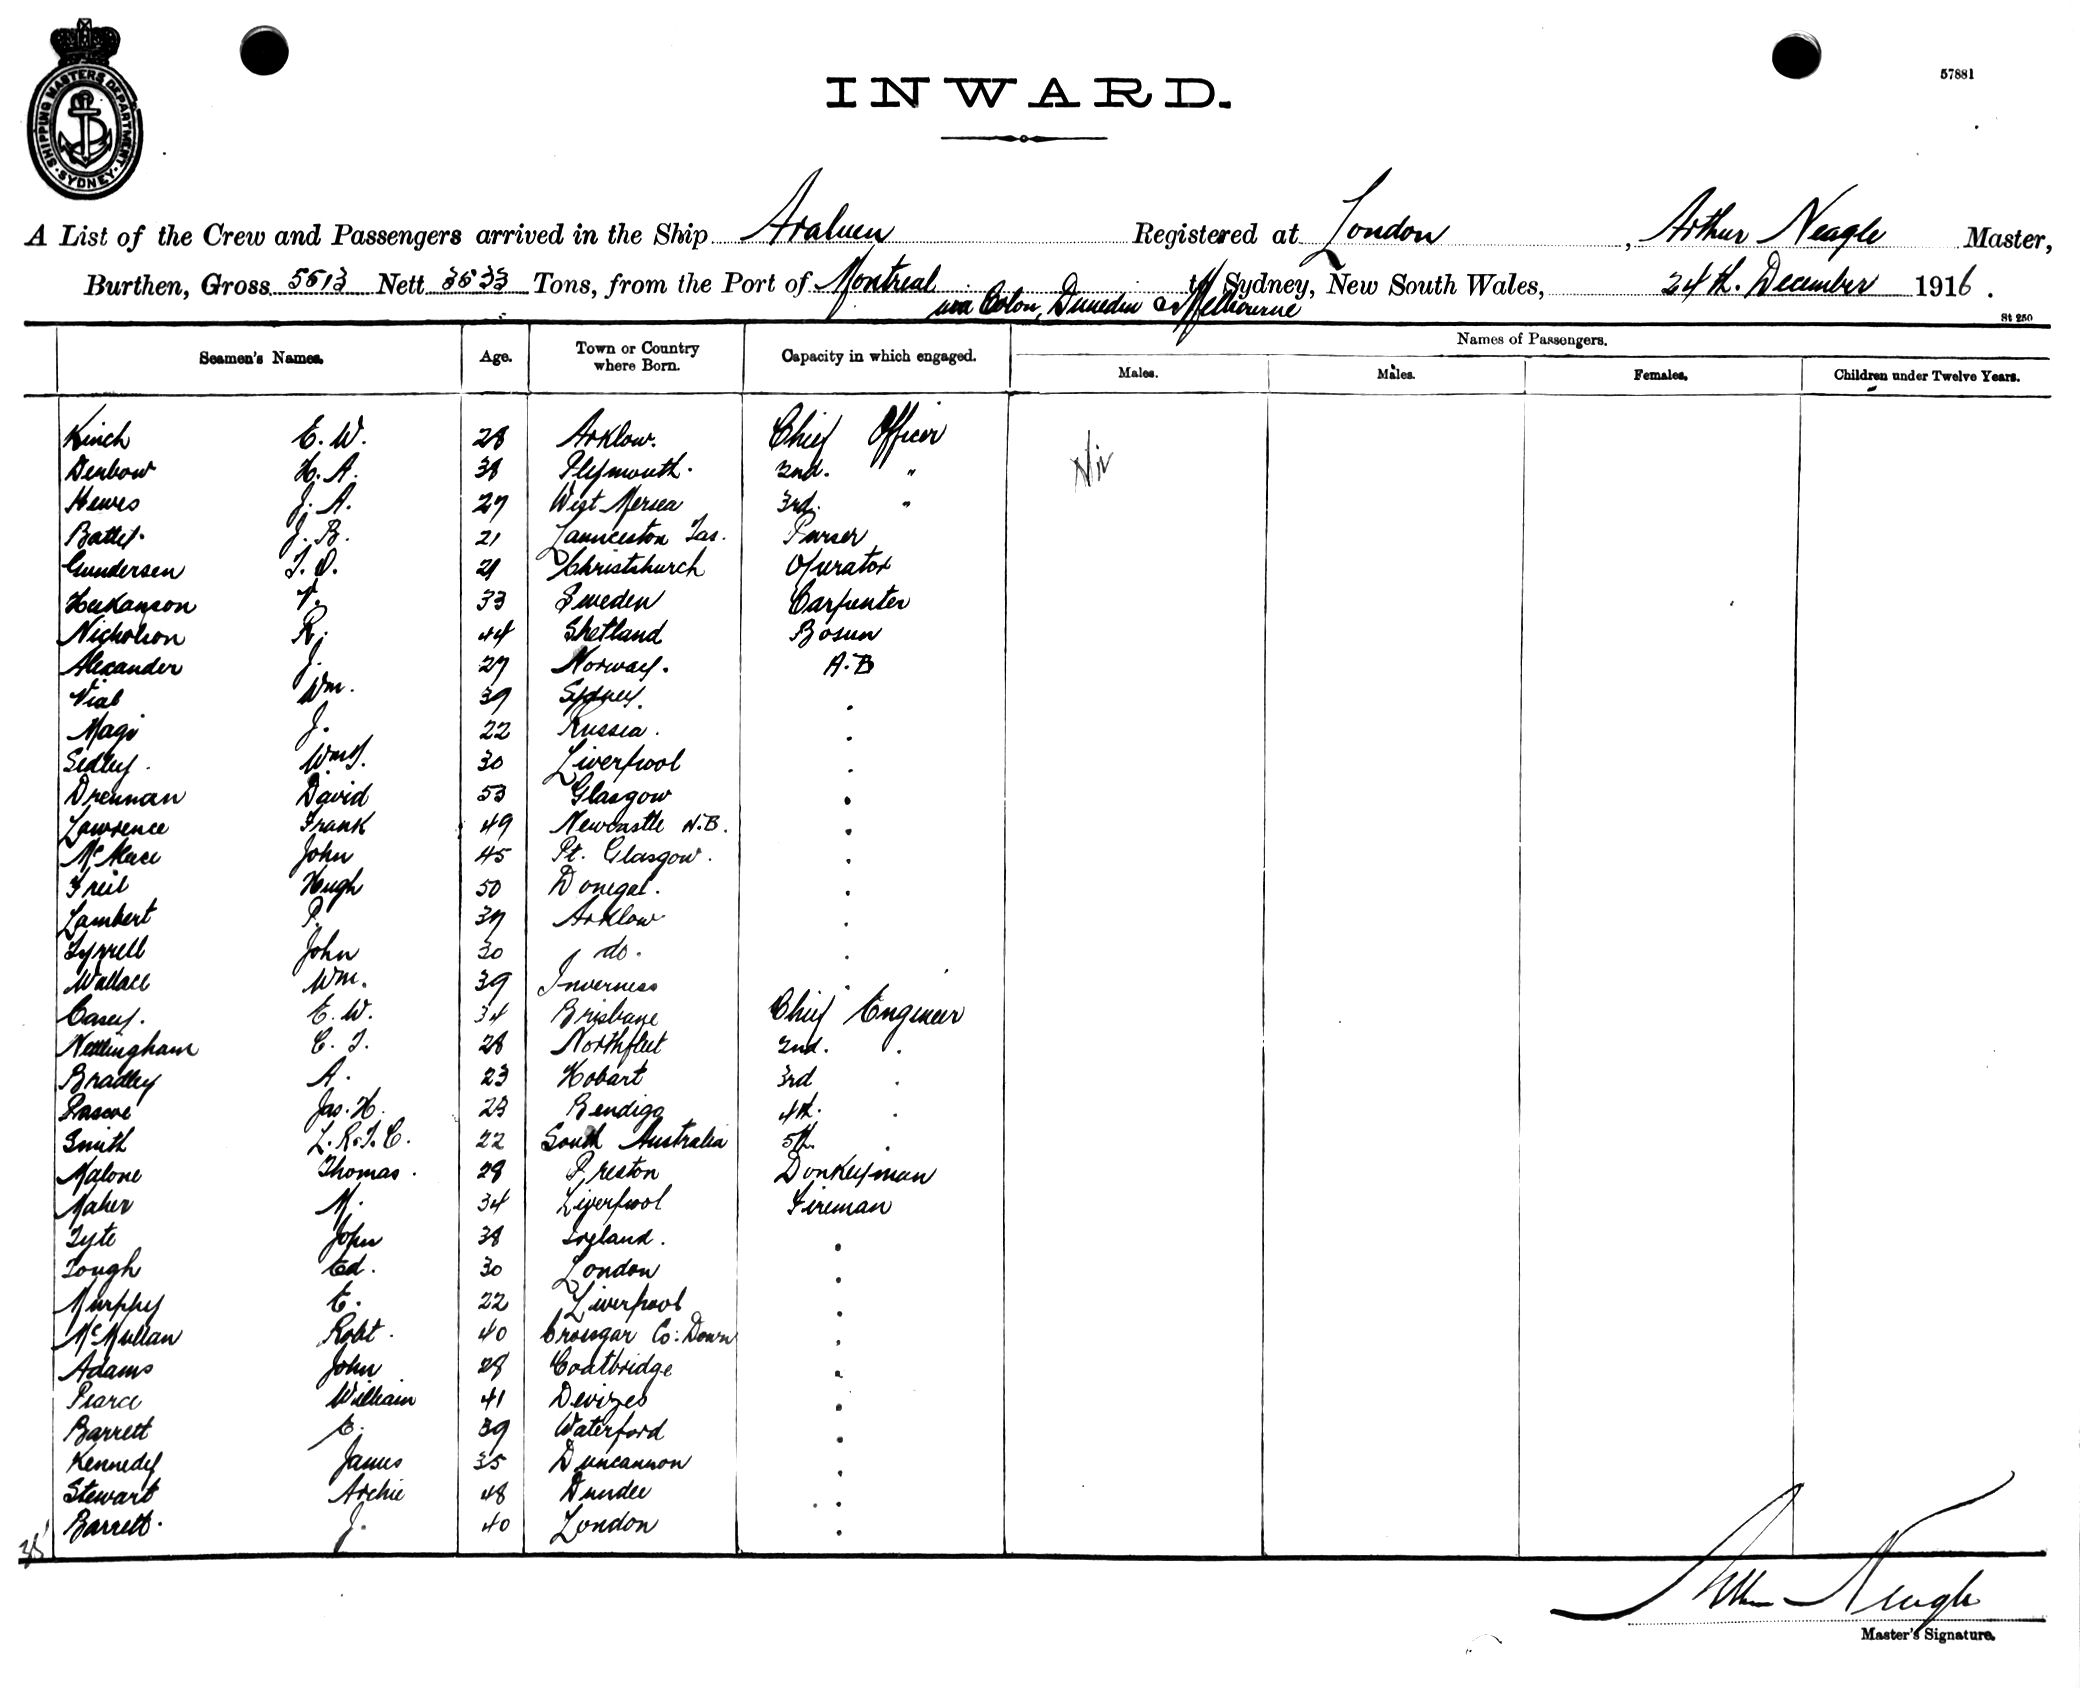 SHIPPING MASTERS DEPARTMENT SYDNEY
57881
INWARD.
A List of the Crew and Passengers arrived in the Ship Araluen Registered at London, Arthur Neagle Master,
Burthen, Gross 5513 Nett 3533 Tons, from the Port of Montreal to Sydney, New South Wales, 24th. December 1916.
via Colon, Dunedin & Melbourne
St 250
Seamen's Names. Age. Town or Country where Born. Capacity in which engaged. Names of Passengers.
Males. Males. Females. Children under Twelve Years.
Kinch E. W. 28 Arklow. Chief Officer Nil
Denbow H. A. 38 Plymouth. 2nd. "
Hewes J. A. 27 West Mersea 3rd. "
Batley. J. B. 21 Launceston Tas. Purser
Gundersen T. O. 21 Christchurch Operator
V. 33 Sweden Carpenter
Nicholson R. 44 Shetland Bosun
Alexander J. 27 Norway. A.B
Vial Wm. 39 Sydney.
Magi J. 22 Russia.
Sedley. WmT. 30 Liverpool
Drennan David 53 Glasgow
Lawrence Frank 49 Newcastle N.B.
John 45 Pt. Glasgow.
Freil Hugh 50 Donegal.
Lambert P. 37 Arklow
Tyrrell John 30 do.
Wallace Wm. 39 Inverness
Casey. E. W. 34 Brisbane Chief Engineer
Nettlingham C. T. 28 Northfleet 2nd.
Bradley A. 23 Hobart 3rd
Pascoe Jas. H. 23 Bendigo 4th.
Smith L. R. T. C. 22 South Australia 5th.
Malone Thomas. 28 Preston Donkeyman
Maher M. 34 Liverpool Fireman
Tyte John 38 Ireland.
Tough Ed. 30 London
Murphy E. 22 Liverpool
McMullan Robt. 40 Crossgar Co: Down
Adams John 28 Coatbridge
Pearce William 41 Devizes
Barrett E. 39 Waterford
Kennedy James 35 Duncannon
Stewart Archie 48 Dundee
Barrett. J. 40 London
35
Arthur Neagle
Master's Signature.